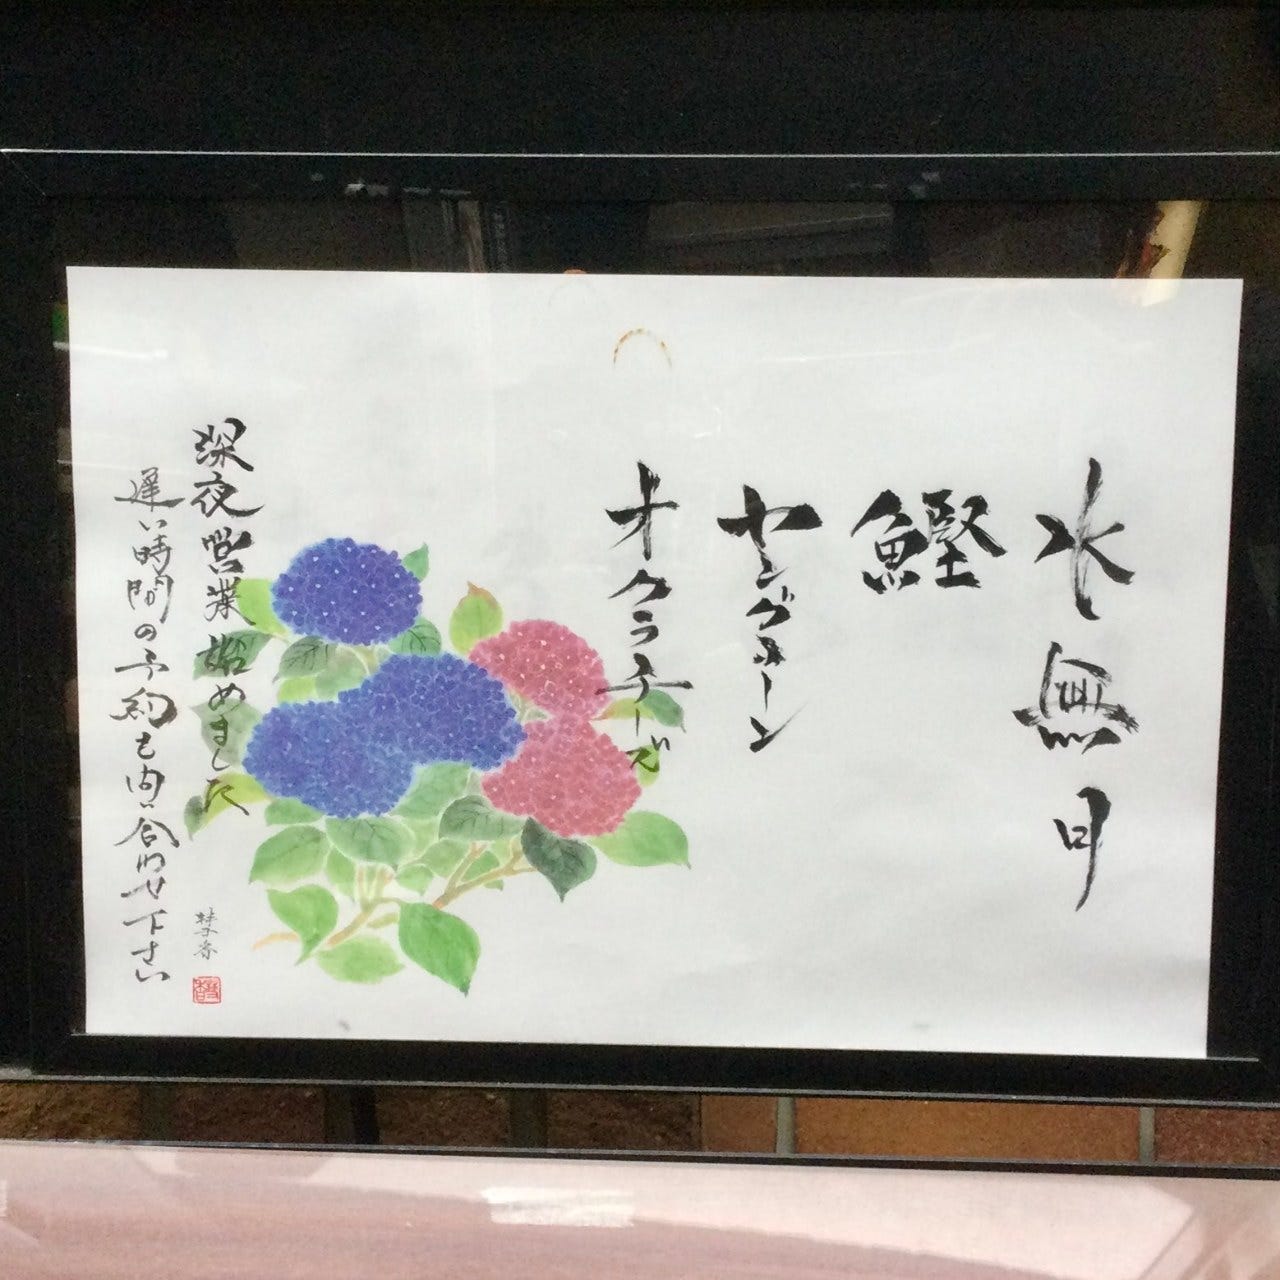 水無月
鰹
ヤングコーン
オクラチーズ
深夜営業始めました
遅い時間の予約も問い合わせ下さい